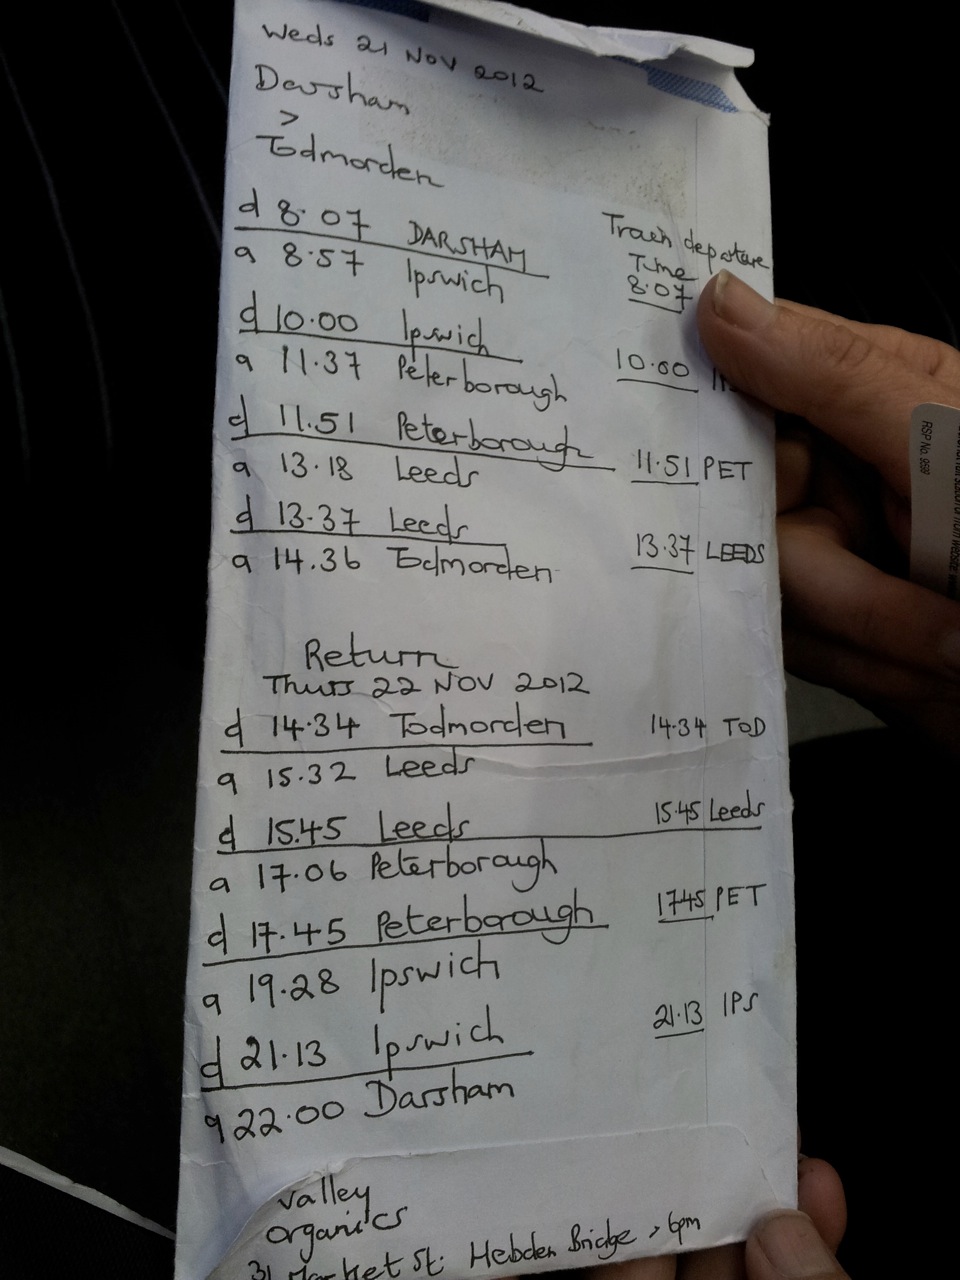 Weds 21 NOV 2012
Darsham
>
Todmorden
Train departure
Time
d 8.07 DARSHAM 8.07
a 8.57 Ipswich
d 10.00 Ipswich 10.00
a 11.37 Peterborough
d 11.51 Peterborough 11.51 PET
a 13.18 Leeds
d 13.37 Leeds 13.37 LEEDS
a 14.36 Todmorden
Return
Thurs 22 NOV 2012
d 14.34 Todmorden 14.34 TOD
a 15.32 Leeds
d 15.45 Leeds 15.45 Leeds
a 17.06 Peterborough
d 17.45 Peterborough 1745 PET
a 19.28 Ipswich
d 21.13 Ipswich 21.13 IPS
a 22.00 Darsham
Valley
organics
31 Market St. Hebden Bridge > 6pm
RSP No. 9599